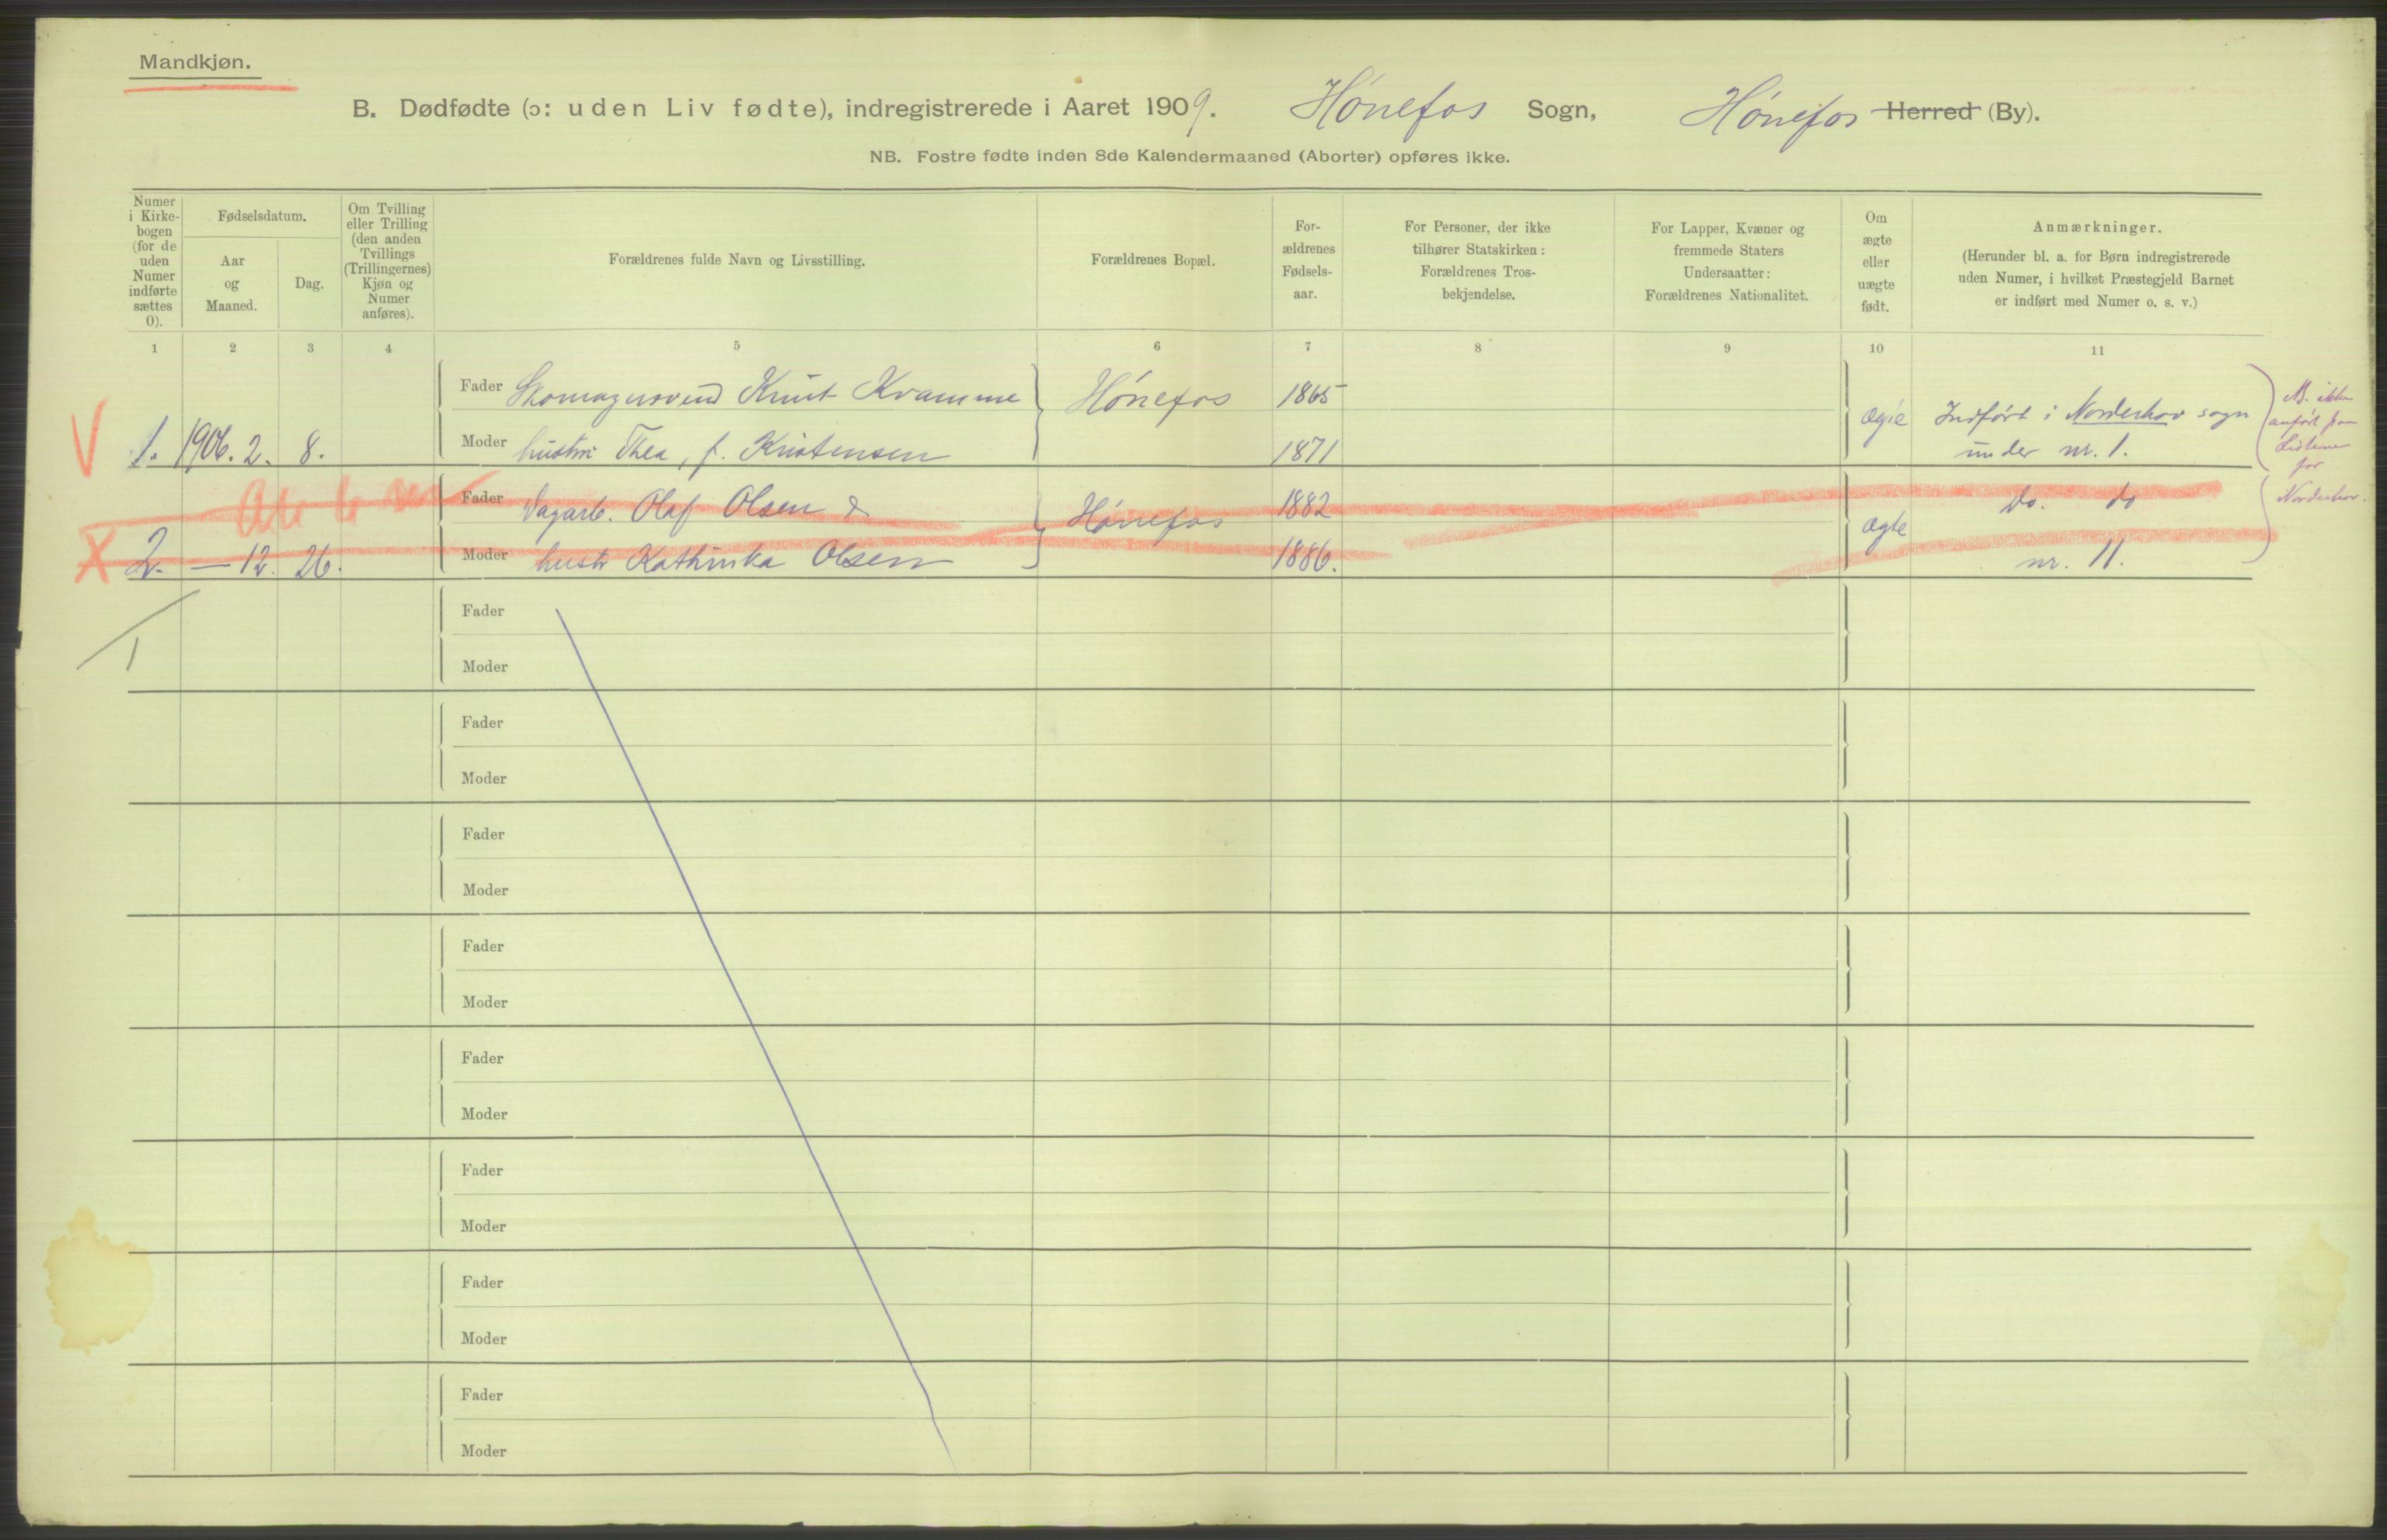 Mandkjøn.
B. Dødfødte (ɔ: uden Liv fødte), indregistrerede i Aaret 1909. Hønefos Sogn, Hønefos Herred (By).
NB. Fostre fødte inden 8de Kalendermaaned (Aborter) opføres ikke.
Numer i Kirkebogen (for de uden Numer indførte sættes 0).
Fødselsdatum.
Aar og Maaned.
Dag.
Om Tvilling eller Trilling (den anden Tvillings (Trillingernes) Kjøn og Numer anføres).
Forældrenes fulde Navn og Livsstilling.
Forældrenes Bopæl.
For-
ældrenes
Fødsels-
aar.
For Personer, der ikke
tilhører Statskirken:
Forældrenes Tros-
bekjendelse.
For Lapper, Kvæner og
fremmede Staters
Undersaatter:
Forældrenes Nationalitet.
Om
ægte
eller
uægte
født.
Anmærkninger.
(Herunder bl. a. for Børn indregistrerede
uden Numer, i hvilket Præstegjeld Barnet
er indført med Numer o. s. v.)
1 2 3 4 5 6 7 8 9 10 11
Fader Skomagersvend Knut Kramme Hønefos 1865
V 1. 1906. 2. 8. Moder hustru Thea, f. Kristensen 1871 ægte Indført i Norderhov sogn
under nr. 1.
NB. ikke
anført paa
Listene
for
Norderhov.
Fader Dagarb. Olaf Olsen & Hønefos 1882 do. do
X 2. — 12. 26. Moder hustr Kathinka Olsen 1886. ægte nr. 11.
1
Fader
Moder
Fader
Moder
Fader
Moder
Fader
Moder
Fader
Moder
Fader
Moder
Fader
Moder
Fader
Moder